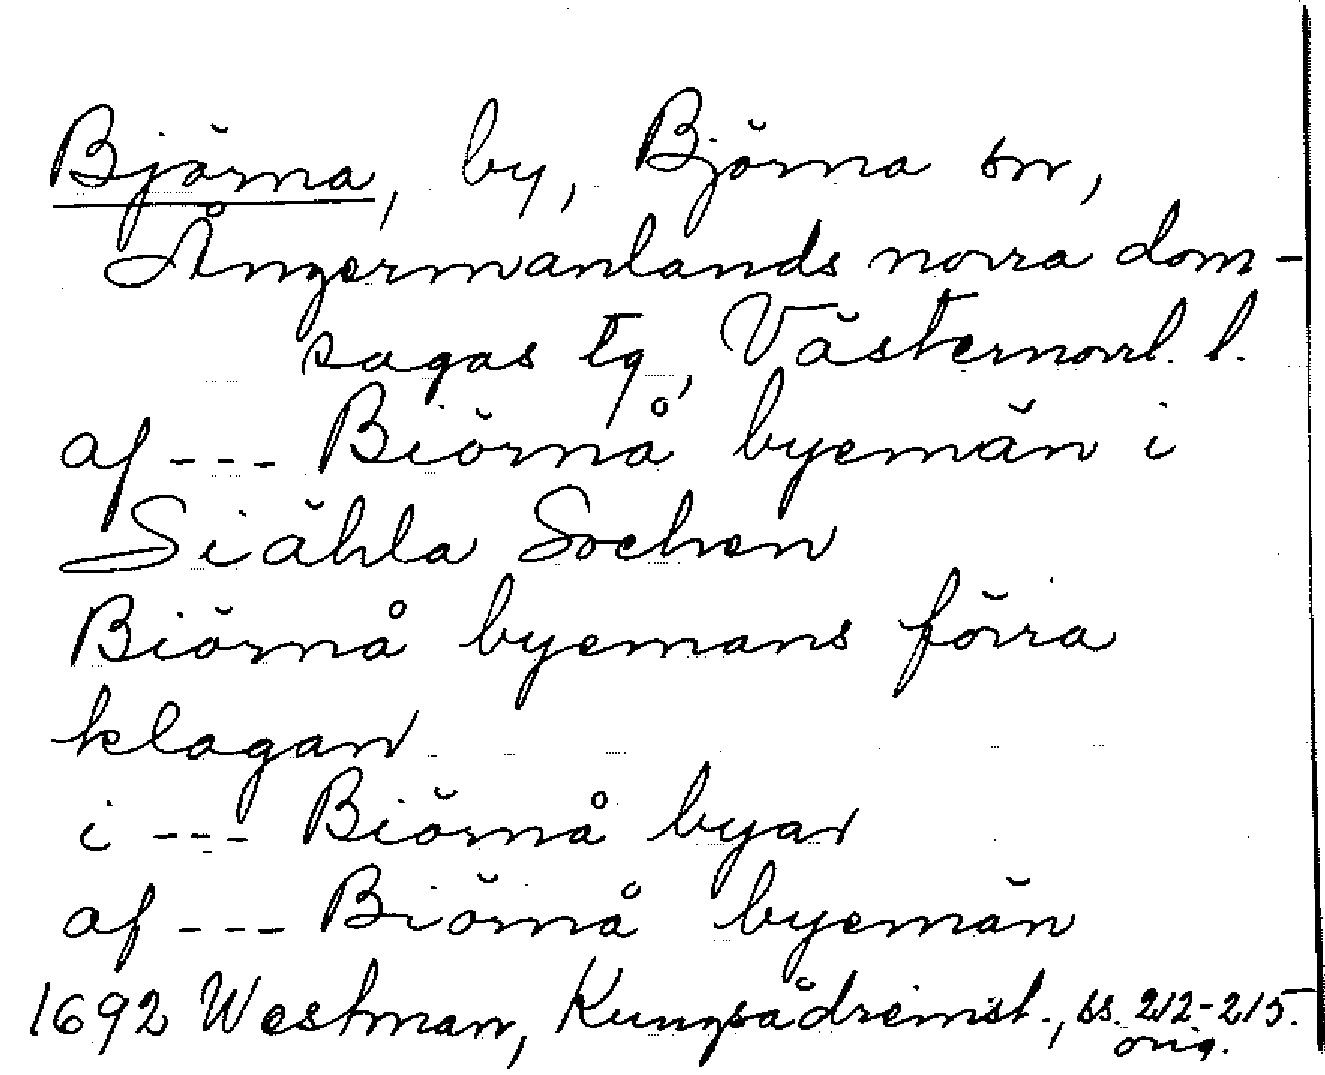 Björna, by, Björna sn,
Ångermanlands norra dom-
sagas tg, Västernorrl. l.
af --- Biörnå byemän i
Siähla Sochen
Biörnå byemans förra
klagan
i --- Biörnå byar
af --- Biörnå byemän
1692 Westman, Kungsådreinst., ss. 212-215.
orig.